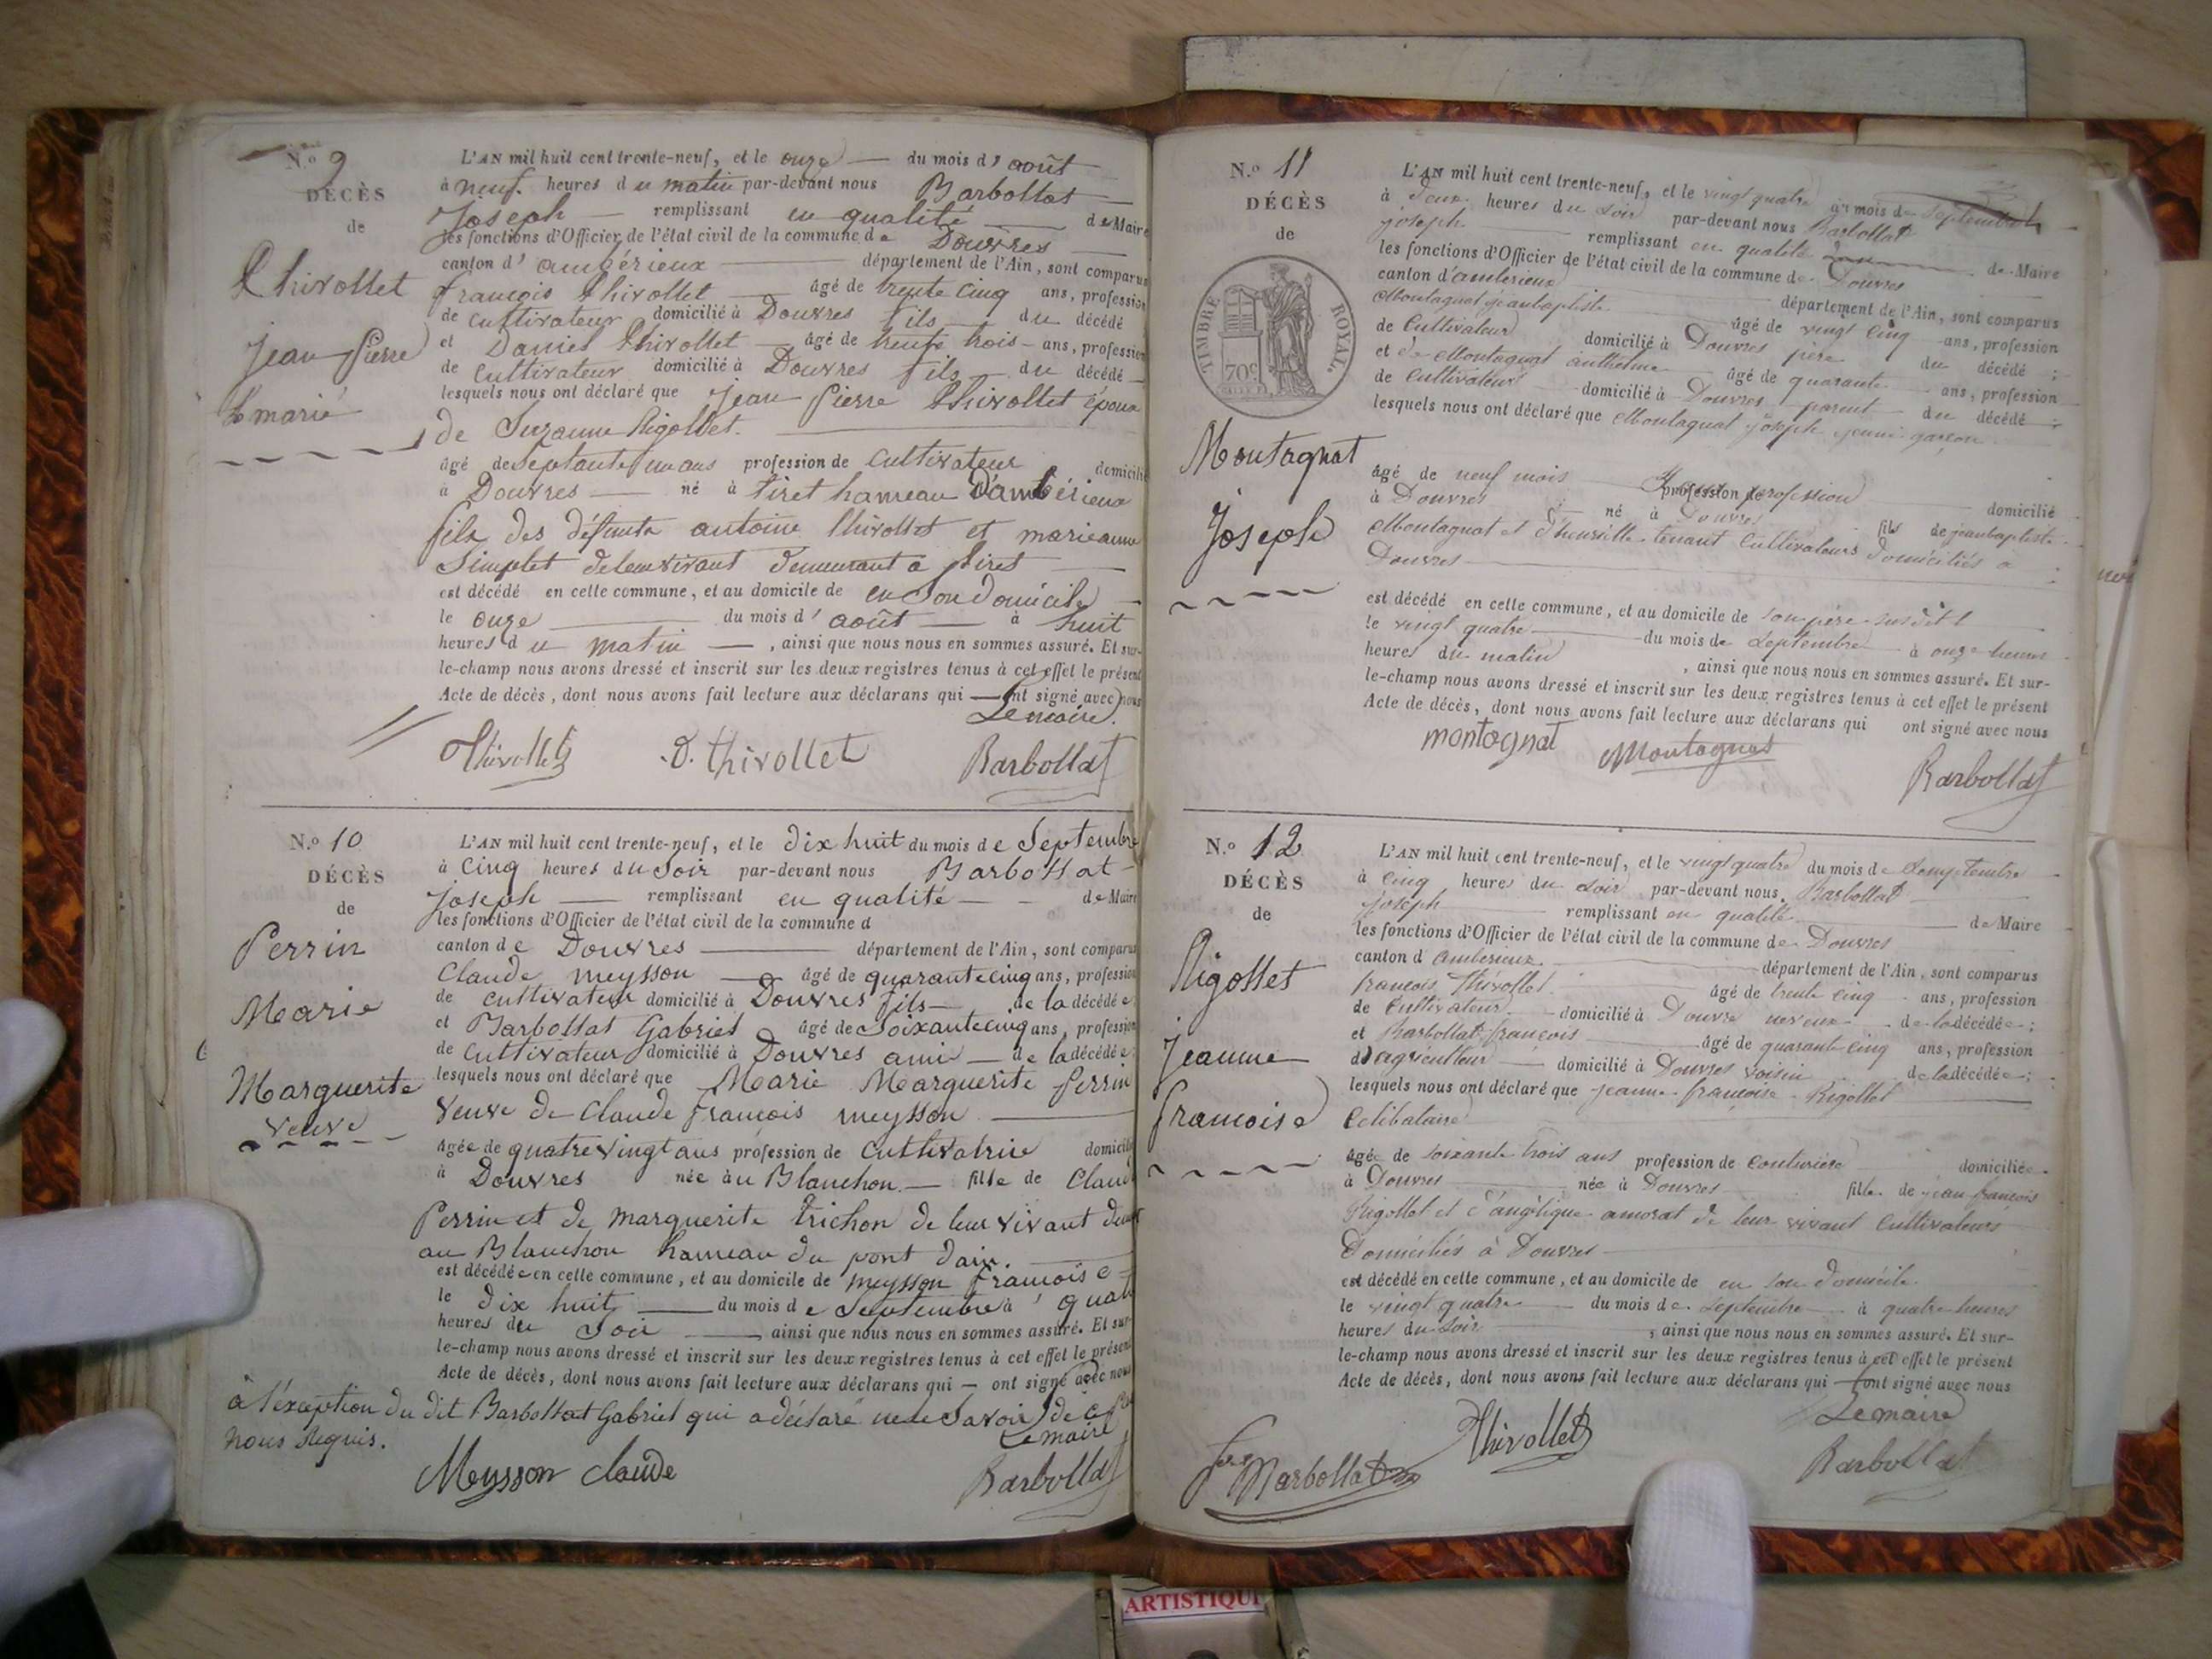 N.o 9
DÉCÈS
de
Thivollet
Jean Pierre
marié
L'AN mil huit cent trente-neuf, et le onze du mois d'août
à neuf heures du matin par-devant nous Barbollat
Joseph remplissant en qualité de Maire
les fonctions d'Officier de l'état civil de la commune de Douvres
canton d'ambérieux département de l'Ain, sont comparus
françois thivollet âgé de trente cinq ans, profession
de cultivateur domicilié à Douvres fils du décédé
et Daniel thivollet âgé de trente trois ans, profession
de cultivateur domicilié à Douvres fils du décédé
lesquels nous ont déclaré que Jean Pierre thivollet époux
de Suzanne Rigollet
âgé de septante un ans profession de cultivateur domicilié
à Douvres né à tiret hameau D'ambérieux
fils des défunts antoine thivollet et marieanne
Simplet de leur vivant demeurant a tiret
est décédé en cette commune, et au domicile de en Son domicile
le onze du mois d'août à huit
heures du matin, ainsi que nous nous en sommes assuré. Et sur-
le-champ nous avons dressé et inscrit sur les deux registres tenus à cet effet le présent
Acte de décès, dont nous avons fait lecture aux déclarans qui ont signé avec nous
Le maire.
Thivollet D. thivollet Barbollat
N.o 10
DÉCÈS
de
Perrin
Marie
Marguerite
veuve
L'AN mil huit cent trente-neuf, et le dix huit du mois de Septembre
à Cinq heures du Soir par-devant nous Barbollat
joseph remplissant en qualité de Maire
les fonctions d'Officier de l'état civil de la commune d
canton de Douvres département de l'Ain, sont comparus
Claude meysson âgé de quarante cinq ans, profession
de cultivateur domicilié à Douvres fils de la décédée
et Barbollat Gabriel âgé de Soixante cinq ans, profession
de cultivateur domicilié à Douvres ami de la décédée
lesquels nous ont déclaré que Marie Marguerite Perrin
veuve de Claude françois meysson
âgée de quatre vingt ans profession de cultivatrice domicilié
à Douvres née au Blanchon fille de Claude
Perrin et de marguerite trichon de leur vivant
au Blanchon hameau du pont dain.
est décédée en cette commune, et au domicile de meysson françois
le dix huit du mois de Septembre à
heures du Soir ainsi que nous nous en sommes assuré. Et sur-
le-champ nous avons dressé et inscrit sur les deux registres tenus à cet effet le présent
Acte de décès, dont nous avons fait lecture aux déclarans qui ont signé avec nous
à l'exception du dit Barbollat Gabriel qui a déclaré ne le Savoir de ce
nous Requis.
Le maire
Meysson claude Barbollat
N.o 11
DÉCÈS
de
TIMBRE ROYAL.
70c
Montagnat
Joseph
L'AN mil huit cent trente-neuf, et le vingt quatre du mois de Septembre
à deux heures du soir par-devant nous Barbollat
joseph remplissant en qualité de Maire
les fonctions d'Officier de l'état civil de la commune de Douvres
canton d'amberieux département de l'Ain, sont comparus
Montagnat jeanbaptiste âgé de vingt cinq ans, profession
de Cultivateur domicilié à Douvres père du décédé;
et de Montagnat anthelme âgé de quarante ans, profession
de cultivateur domicilié à Douvres parent du décédé;
lesquels nous ont déclaré que Montagnat joseph jeune garçon
âgé de neuf mois profession de profession domicilié
à Douvres né à Douvres fils de jeanbaptiste
Montagnat et tenant Cultivateurs domiciliés à
Douvres
est décédé en cette commune, et au domicile de son père susdit
le vingt quatre du mois de Septembre à onze heures
heures du matin, ainsi que nous nous en sommes assuré. Et sur-
le-champ nous avons dressé et inscrit sur les deux registres tenus à cet effet le présent
Acte de décès, dont nous avons fait lecture aux déclarans qui ont signé avec nous
montagnat Montagnat Barbollat
N.o 12
DÉCÈS
de
Rigollet
jeanne
francoise
L'AN mil huit cent trente-neuf, et le vingt quatre du mois de Semptembre
à cinq heures du soir par-devant nous Barbollat
joseph remplissant en qualité de Maire
les fonctions d'Officier de l'état civil de la commune de Douvres
canton d amberieux département de l'Ain, sont comparus
francois Thivollet âgé de trente cinq ans, profession
de Cultivateur domicilié à Douvre neveux de la décédée;
et Barbollat françois âgé de quarante cinq ans, profession
d'agriculteur domicilié à Douvres voisin de la décédée;
lesquels nous ont déclaré que jeanne francoise Rigollet
Celibataire
âgée de soixante trois ans profession de couturiere domiciliée
à Douvres née à Douvres fille de jean françois
Rigollet et d'angélique amorat de leur vivant Cultivateurs
Domiciliés à Douvres
est décédé en cette commune, et au domicile de en son domicile
le vingt quatre du mois de Septembre à quatre heures
heures du soir, ainsi que nous nous en sommes assuré. Et sur-
le-champ nous avons dressé et inscrit sur les deux registres tenus à cet effet le présent
Acte de décès, dont nous avons fait lecture aux déclarans qui ont signé avec nous
Le maire
Barbollat Thivollet Barbollat
ARTISTIQU